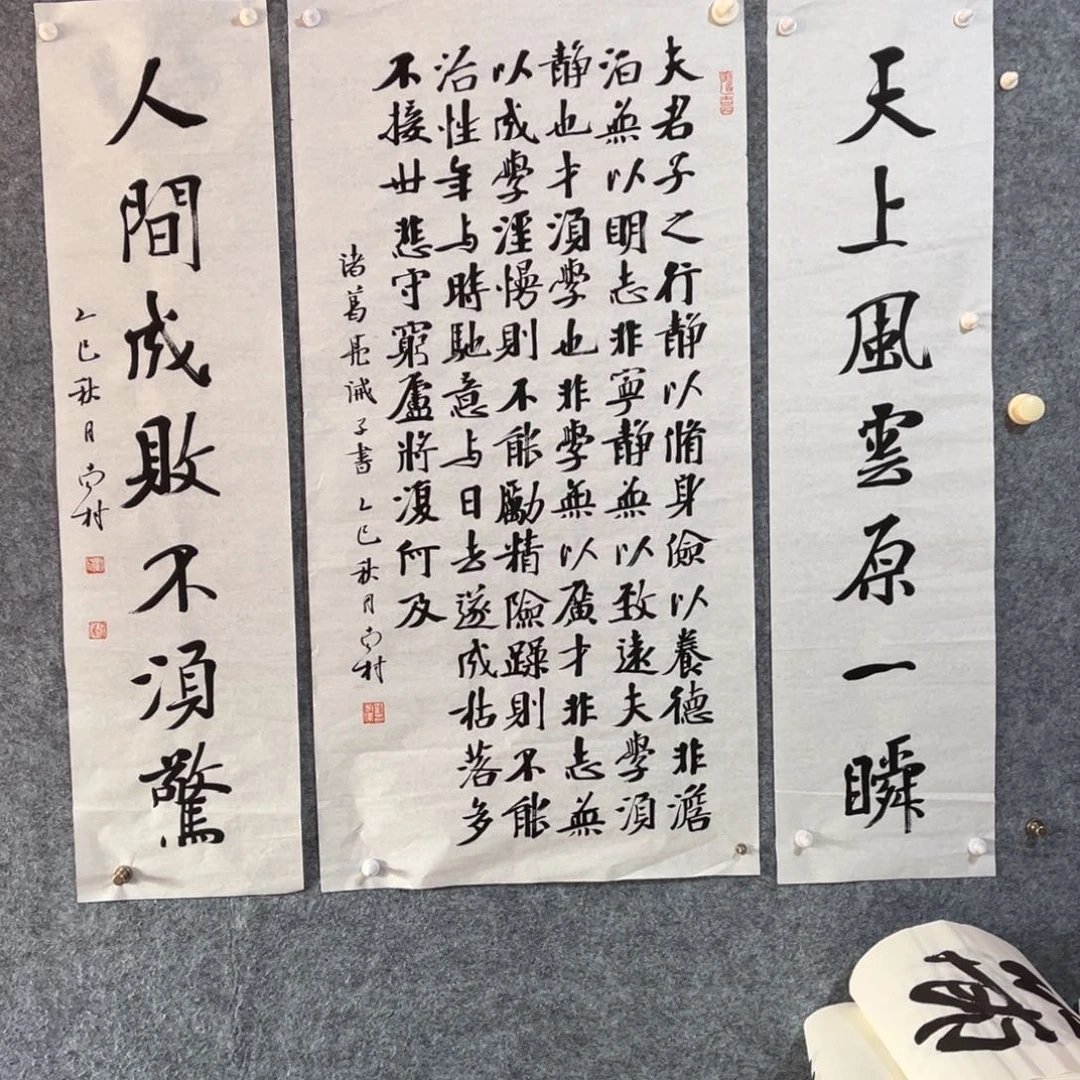 天上風雲原一瞬
夫君子之行静以脩身儉以養德非澹
泊無以明志非寧静無以致遠夫學須
静也才須學也非學無以廣才非志無
以成學淫慢則不能勵精險躁則不能
治性年与時馳意与日去遂成枯落多
不接世悲守窮廬將復何及
諸葛亮誡子書 乙巳秋月 尚村
人間成敗不須驚
乙巳秋月 尚村